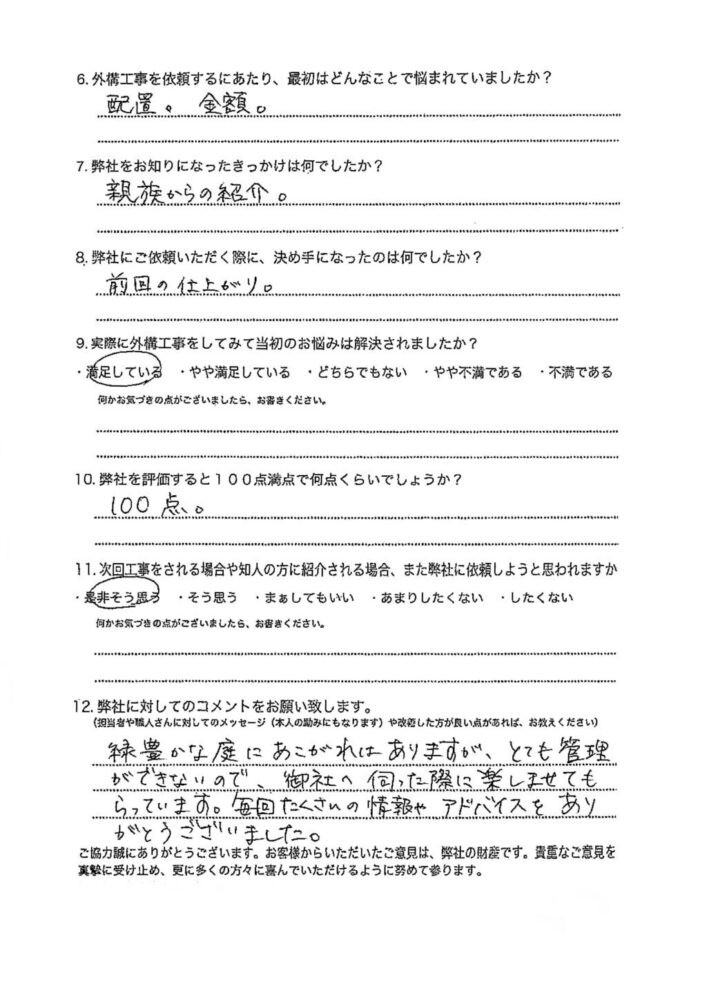 6. 外構工事を依頼するにあたり、最初はどんなことで悩まれていましたか？
配置。 金額。
7. 弊社をお知りになったきっかけは何でしたか？
親族からの紹介。
8. 弊社にご依頼いただく際に、決め手になったのは何でしたか？
前回の仕上がり。
9. 実際に外構工事をしてみて当初のお悩みは解決されましたか？
・満足している ・やや満足している ・どちらでもない ・やや不満である ・不満である
何かお気づきの点がございましたら、お書きください。
10. 弊社を評価すると１００点満点で何点くらいでしょうか？
100点。
11. 次回工事をされる場合や知人の方に紹介される場合、また弊社に依頼しようと思われますか
・是非そう思う ・そう思う ・まぁしてもいい ・あまりしたくない ・したくない
何かお気づきの点がございましたら、お書きください。
12. 弊社に対してのコメントをお願い致します。
（担当者や職人さんに対してのメッセージ（本人の励みにもなります）や改善した方が良い点があれば、お教えください）
緑豊かな庭にあこがれはありますが、とても管理
ができないので、御社へ伺った際に楽しませても
らっています。毎回たくさんの情報や アドバイスを あり
がとうございました。
ご協力誠にありがとうございます。お客様からいただいたご意見は、弊社の財産です。貴重なご意見を
真摯に受け止め、更に多くの方々に喜んでいただけるように努めて参ります。